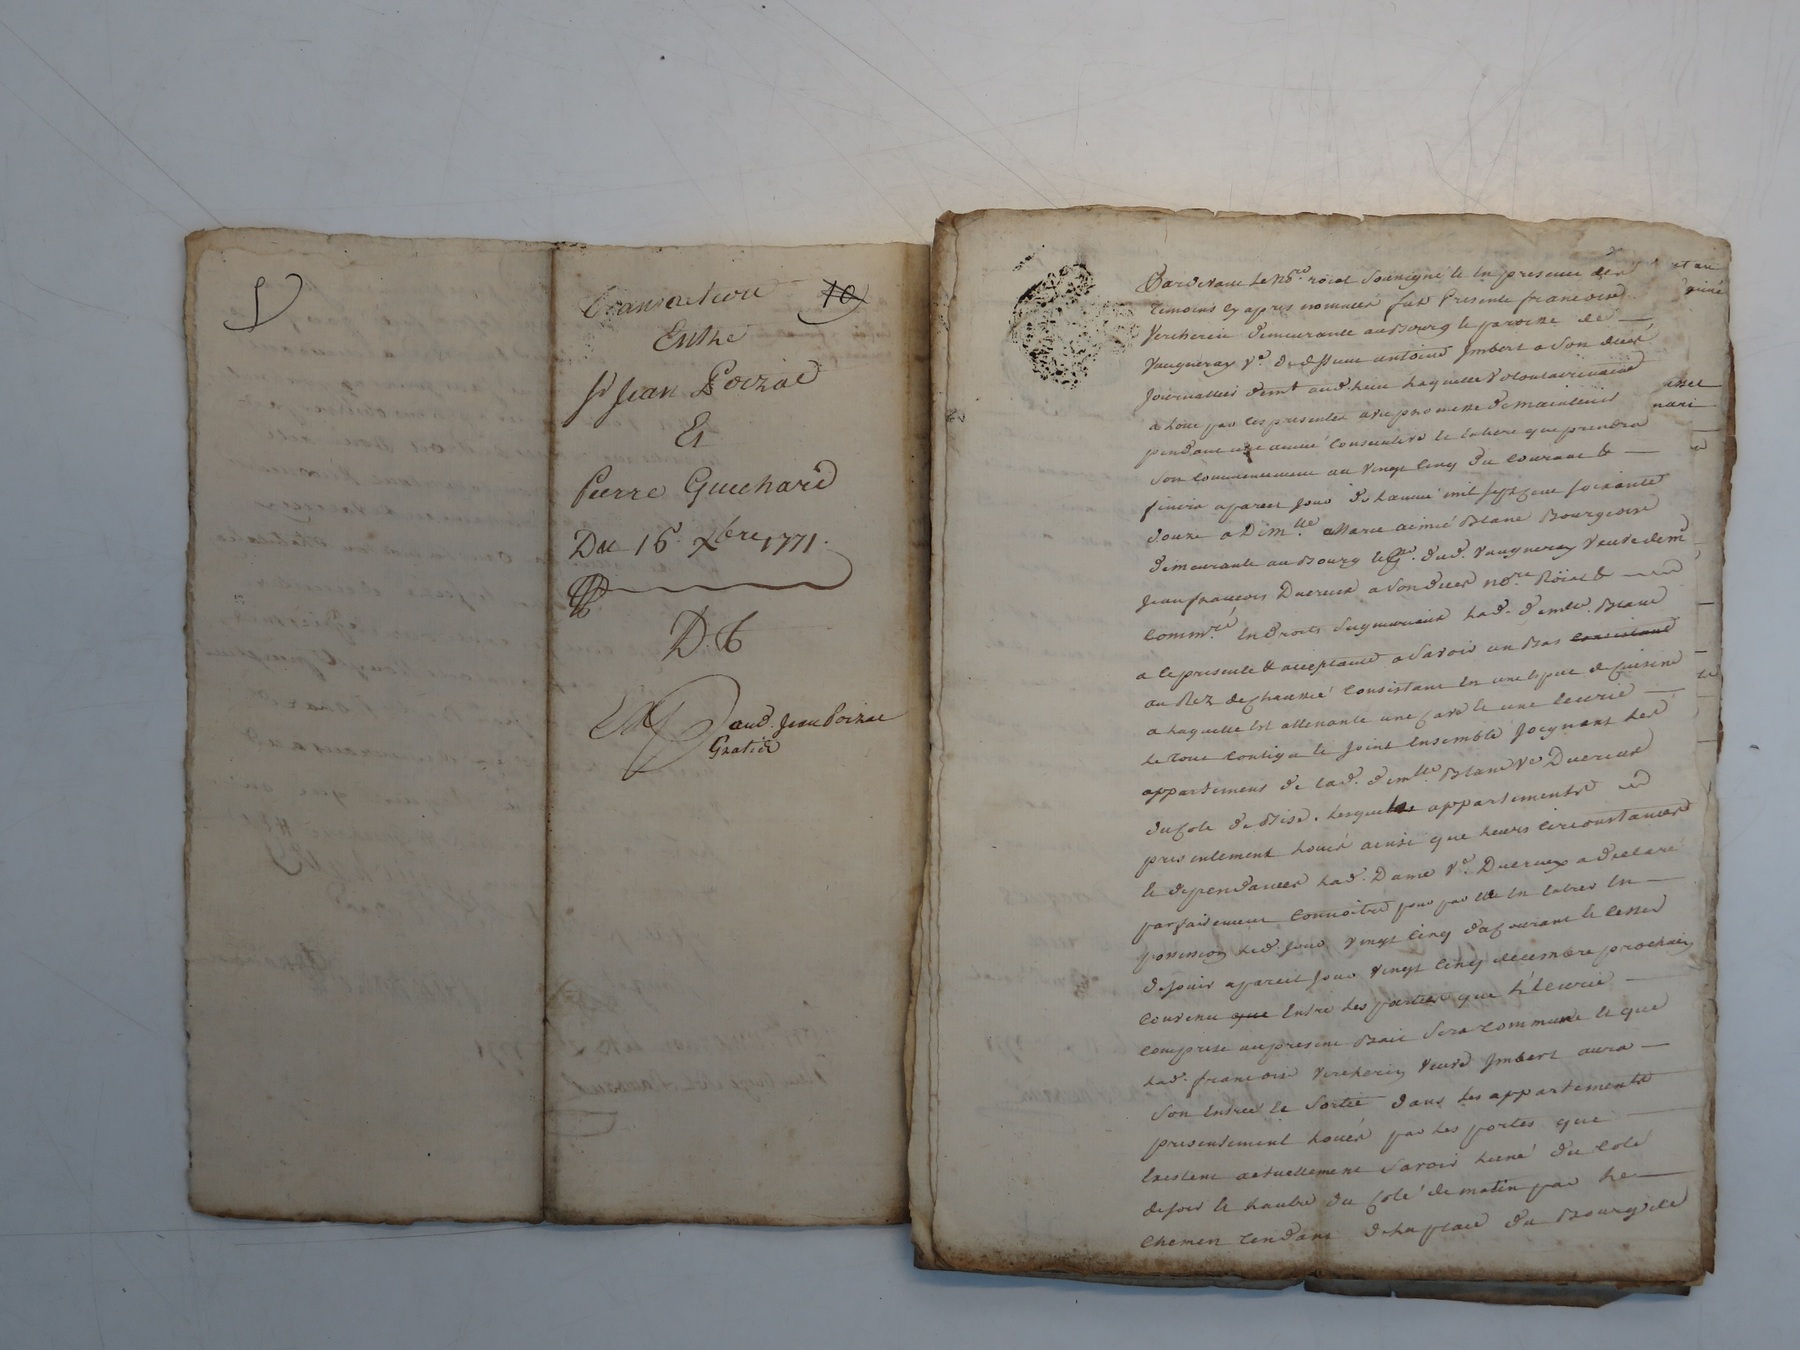 Transaction 10
Entre
Sr Jean Poizac
Et
Pierre Guichard
Du 16 xbre 1771.
D.G
aud. Jean Poizac
Gratis
Pardevant le Nore roial soussigné et en presence des
Temoins cy apres nommés fut Presente francoise
Vercherin demeurante au Bourg et paroisse de
Vaugneray Ve de deffunt antoine Jmbert a son deces
Journallier demt aud. lieu Laquelle volontairement
a loué par ces presentes avec promesse de maintenir
pendant une année consecutive et entiere que prendra
son commencement au vingt cinq du courant &
finira a pareil jour de L'année mil sept cent soixante
douze a Dlle Marie aimée Blanc Bourgeoise
demeurante au Bourg et pse dud. Vaugneray Veuve de mr
Jean francois Ducreux a son deces nore Roial &
Commre En Droits Seigneuriaux Lad. demlle Blanc
a ce presente & acceptante a savoir un Bas consistant
au Rez de chaussé Consistant En une Espece de Cuisine
a laquelle Est attenante une cave et une Ecurie
Le tout Contigu et Joint Ensemble Joignant les
appartemens de lad. demlle Blanc Ve Ducreux
du Coté de Bise. Lesquels appartements
presentement Loués ainsi que Leurs circonstances
et dependances Lad. Dame Ve Ducreux a declaré
parfaitement Connoitre pour par elle En Entrer En
possession led. jour vingt cinq du courant et Cesser
de Jouir a pareil jour vingt cinq decembre prochain
Convenu que Entre les parties que L'Ecurie
comprise au present Bail sera commune et que
Lad. francoise Vercherin Veuve Jmbert aura
son Entrée et Sortie dans les appartements
presentement Loués par les portes que
Existent actuellement Savoir L'une du Coté
de soir et L'autre du Coté de matin par le
Chemin Tendant de la place du Bourg de